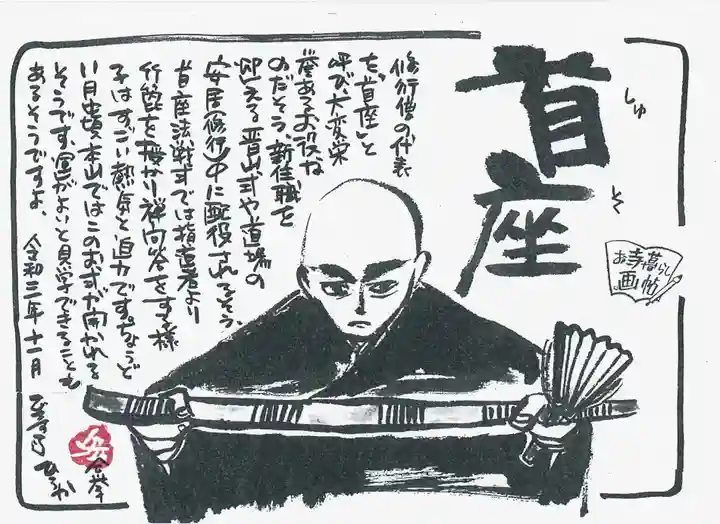 首座
しゅそ
お寺暮らし
画帖
修行僧の代表
を「首座」と
呼び大変栄
誉あるお役な
のだそう。新住職を
迎える晋山式や道場の
安居(修行)中に配役されるそう。
首座法戦式では指導者より
竹箆を授かり禅問答をする様
子はすごい熱気と迫力です。ちょうど
11月中頃、本山ではこのお式が開かれる
そうです。運がよいと見学できることも
あるそうですよ。 令和三年十一月
合掌